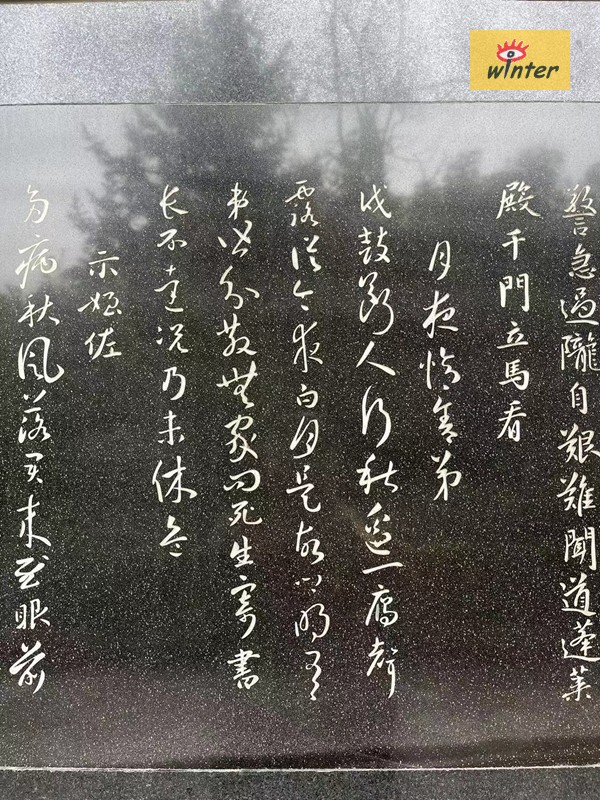 警急過隴自艱難聞道蓬萊
殿千門立馬看
月夜憶舍弟
戍鼓斷人行秋邊一雁聲
露從今夜白月是故鄉明有
弟皆分散無家問死生寄書
長不達況乃未休兵
示姪佐
多病秋風落君來慰眼前
winter